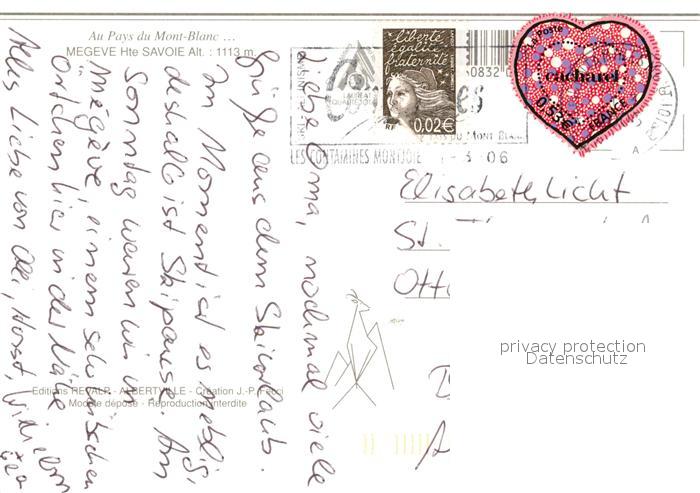 Au Pays du Mont-Blanc ...
MEGEVE Hte SAVOIE Alt. : 1113 m.
Liebe Oma, nochmal viele
Grüße aus dem Skiurlaub.
Im Moment ist es neblig,
deshalb ist Skipause. Am
Sonntag waren wir in
Mégève, einem sehr hübschen
Örtchen hier in der Nähe
Alles Liebe von Horst,
Editions REVALP - ALBERTVILLE - Création J.-P.
Modèle déposé - Reproduction interdite
LES CONTAMINES MONTJOIE
-3-06
DU MONT BLANC
liberté
égalité
fraternité
RF
0,02€
0832
Poste
cacharel
0,53€
FRANCE
A
Elisabeth Licht
St.
Ott
privacy protection
Datenschutz